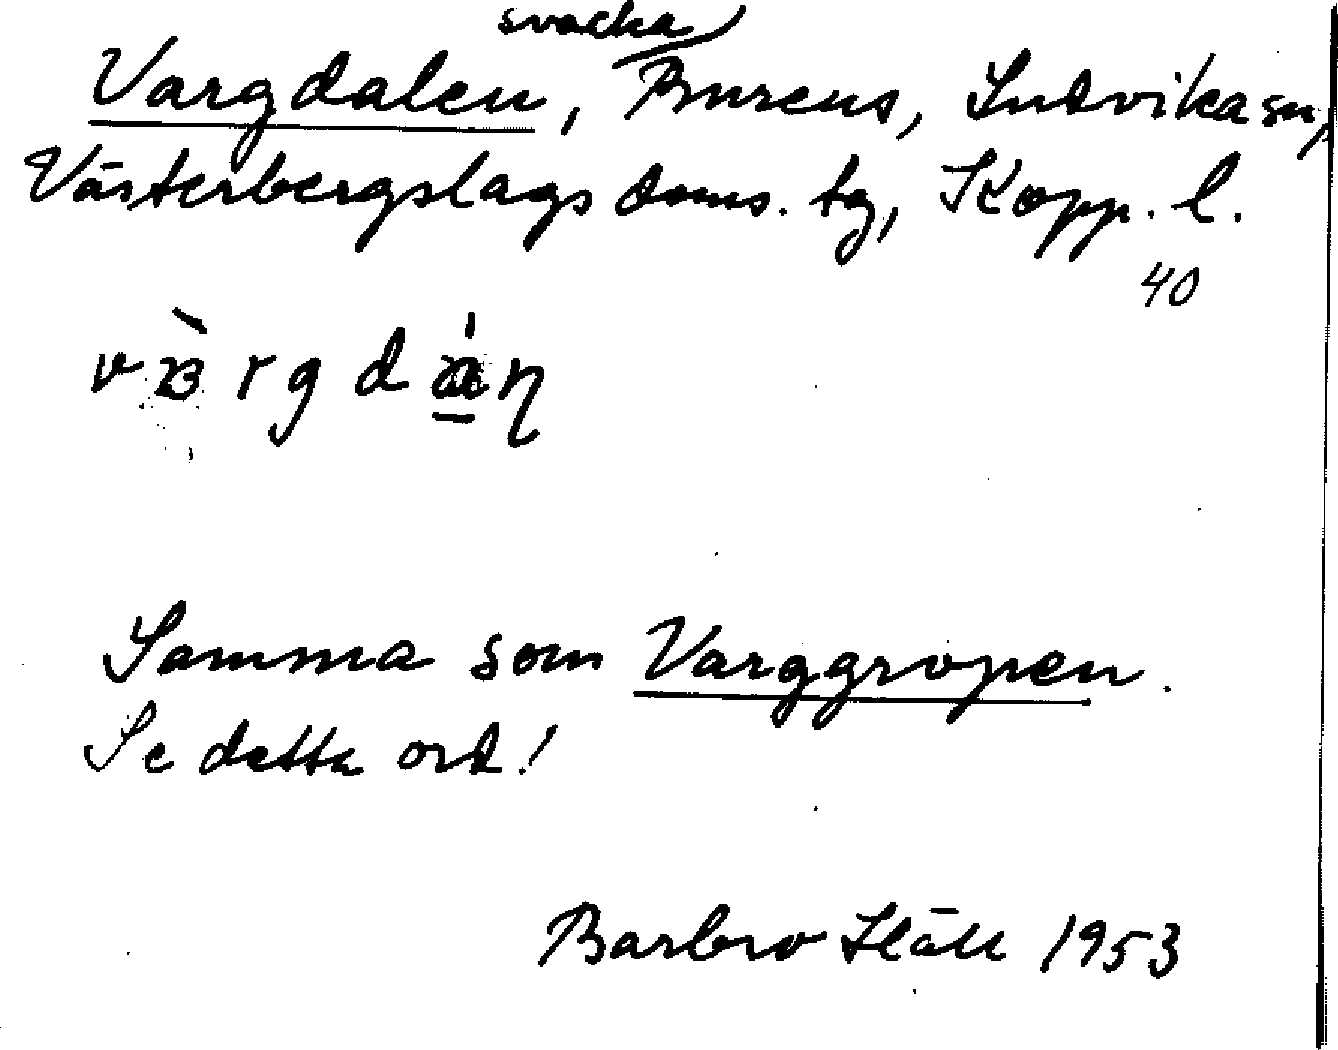 svacka
Vargdalen, Burens, Ludvika sn,
Västerbergslags doms. tg, Kopp. l.
40
Samma som Varggropen.
Se detta ord!
Barbro 1953